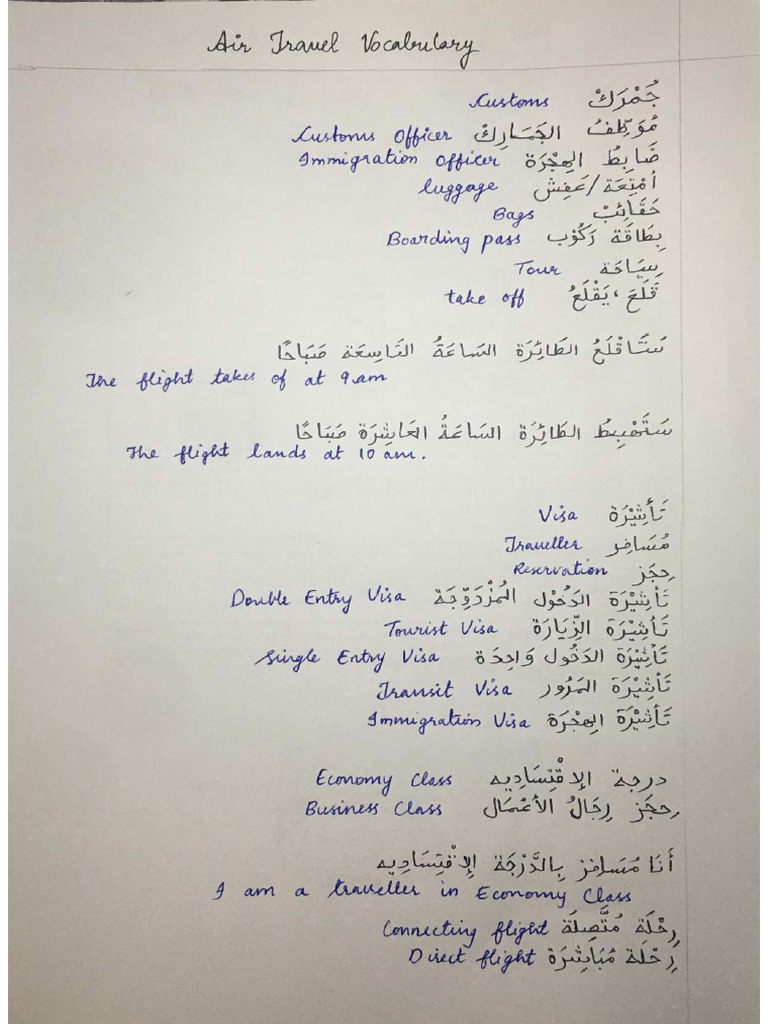 Air Travel Vocabulary
Customs جُمْرَكْ
Customs Officer مُوَظِّفُ الجَمَارِكْ
Immigration officer ضَابِطُ الهِجْرَة
luggage أمْتِعَة/عَفِش
Bags حَقَائِبْ
Boarding pass بِطَاقَة رَكُوْب
Tour سِيَاحَة
take off قَلَعَ، يَقْلَعُ
سَتَاقْلَعُ الطَائِرَة السَاعَةُ التَاسِعَة صَبَاحًا
The flight takes of at 9.am
سَتَهْبِطُ الطَائِرَة السَاعَةُ العَاشِرَة صَبَاحًا
The flight lands at 10 am.
Visa تَأشِيْرَة
Traveller مُسَافِر
Reservation حِجَز
Double Entry Visa تَأشِيْرَة الدَخُوْل المُزْدَوِّجَة
Tourist Visa تَأشِيْرَة الزِّيَارَة
Single Entry Visa تَأشِيْرَة الدَخُول وَاحِدَة
Transit Visa تَأشِيْرَة المَرُور
Immigration Visa تَأشِيْرَة الهِجْرَة
Economy Class درجة الإقْتِسَادِيه
Business Class حِجَز رِجَالُ الأعْمَال
أَنَا مُسَافِر بِالدَّرْجَة الإقْتِسَادِيه
I am a traveller in Economy Class
Connecting flight رِحْلَة مُتَّصِلَة
Direct flight رِحْلَة مُبَاشِرَة